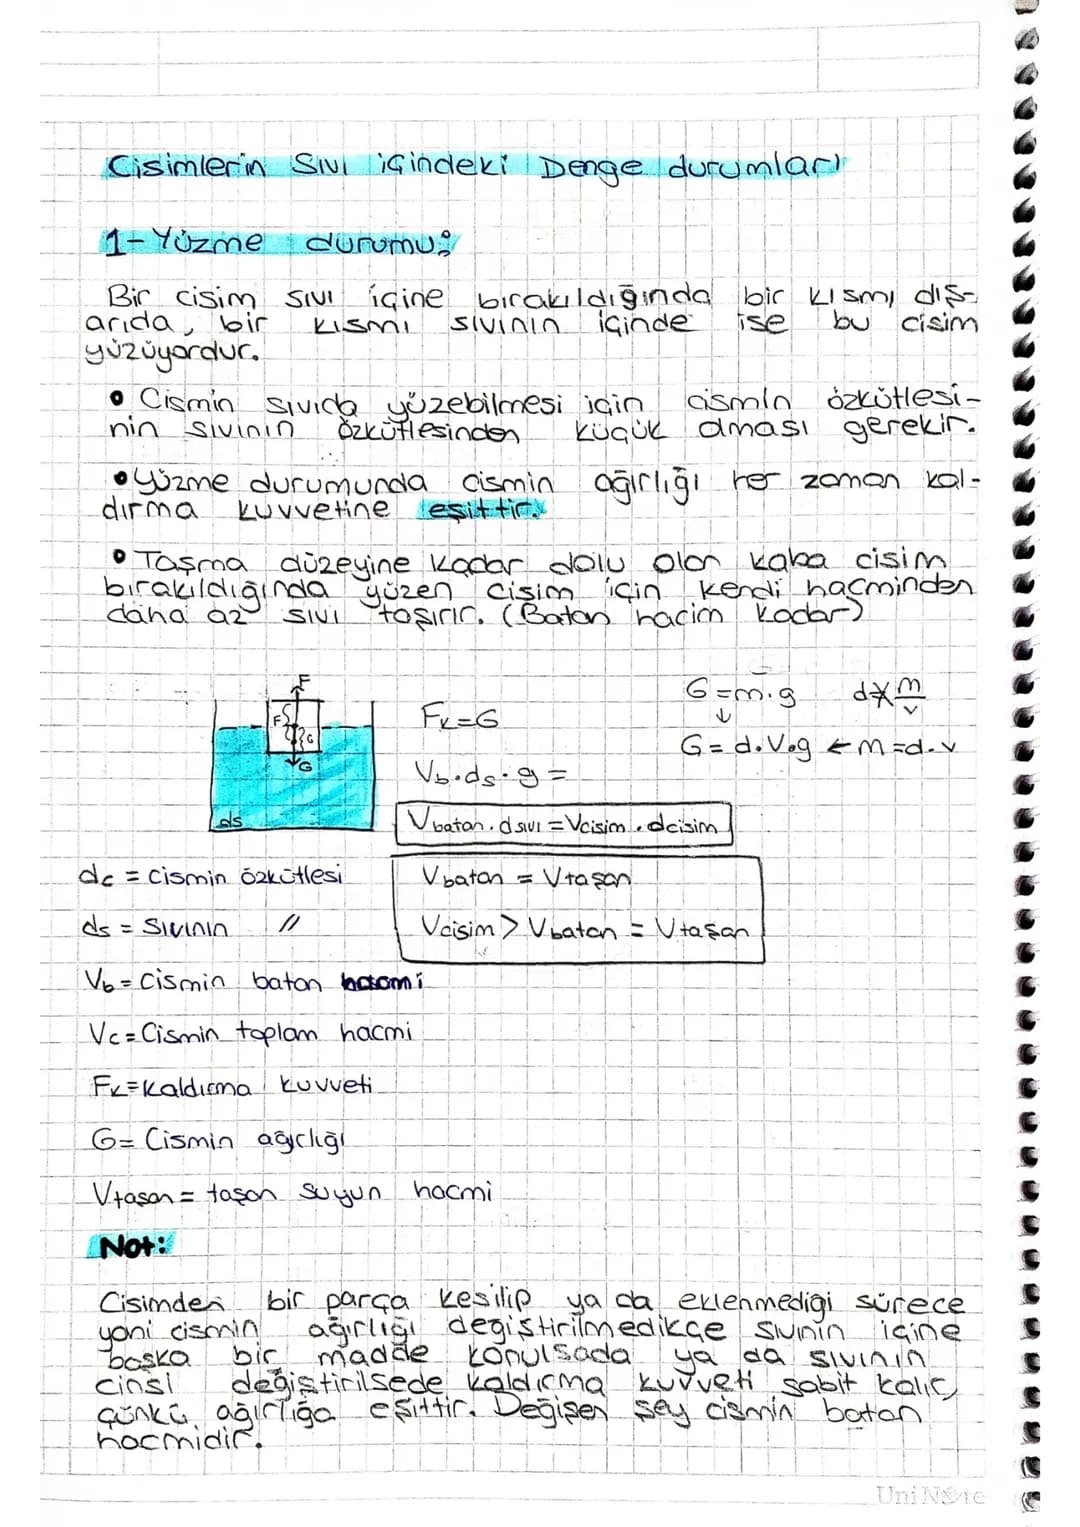 Cisimlerin Sıvı içindeki Denge durumları
1- Yüzme durumu:
Bir cisim sıvı içine bırakıldığında bir kısmı dış-
arıda, bir kısmı sıvının içinde ise bu cisim
yüzüyordur.
• Cismin sıvıda yüzebilmesi için cismin özkütlesi-
nin sıvının özkütlesinden küçük olması gerekir.
• Yüzme durumunda cismin ağırlığı her zaman kal-
dırma kuvvetine eşittir.
• Taşma düzeyine kadar dolu olan kaba cisim
bırakıldığında yüzen cisim için kendi hacminden
daha az sıvı taşırır. (Batan hacim kadar)
F
F
G
G
ds
Fk=G
G=m.g
d=m/v
Vb.ds.g =
G= d.V.g ← m=d.v
Vbatan.dsıvı=Vcisim.dcisim
dc = cismin özkütlesi
Vbatan = Vtaşan
ds = Sıvının //
Vcisim > Vbatan = Vtaşan
Vb= Cismin batan hacmi
Vc= Cismin toplam hacmi
Fk=Kaldırma kuvveti
G= Cismin ağırlığı
Vtaşan = taşan suyun hacmi
Not:
Cisimden bir parça kesilip ya da eklenmediği sürece
yani cismin ağırlığı değiştirilmedikçe sıvının içine
başka bir madde konulsada ya da sıvının
cinsi değiştirilsede kaldırma kuvveti sabit kalır,
çünkü ağırlığa eşittir. Değişen şey cismin batan
hacmidir.
UniNote